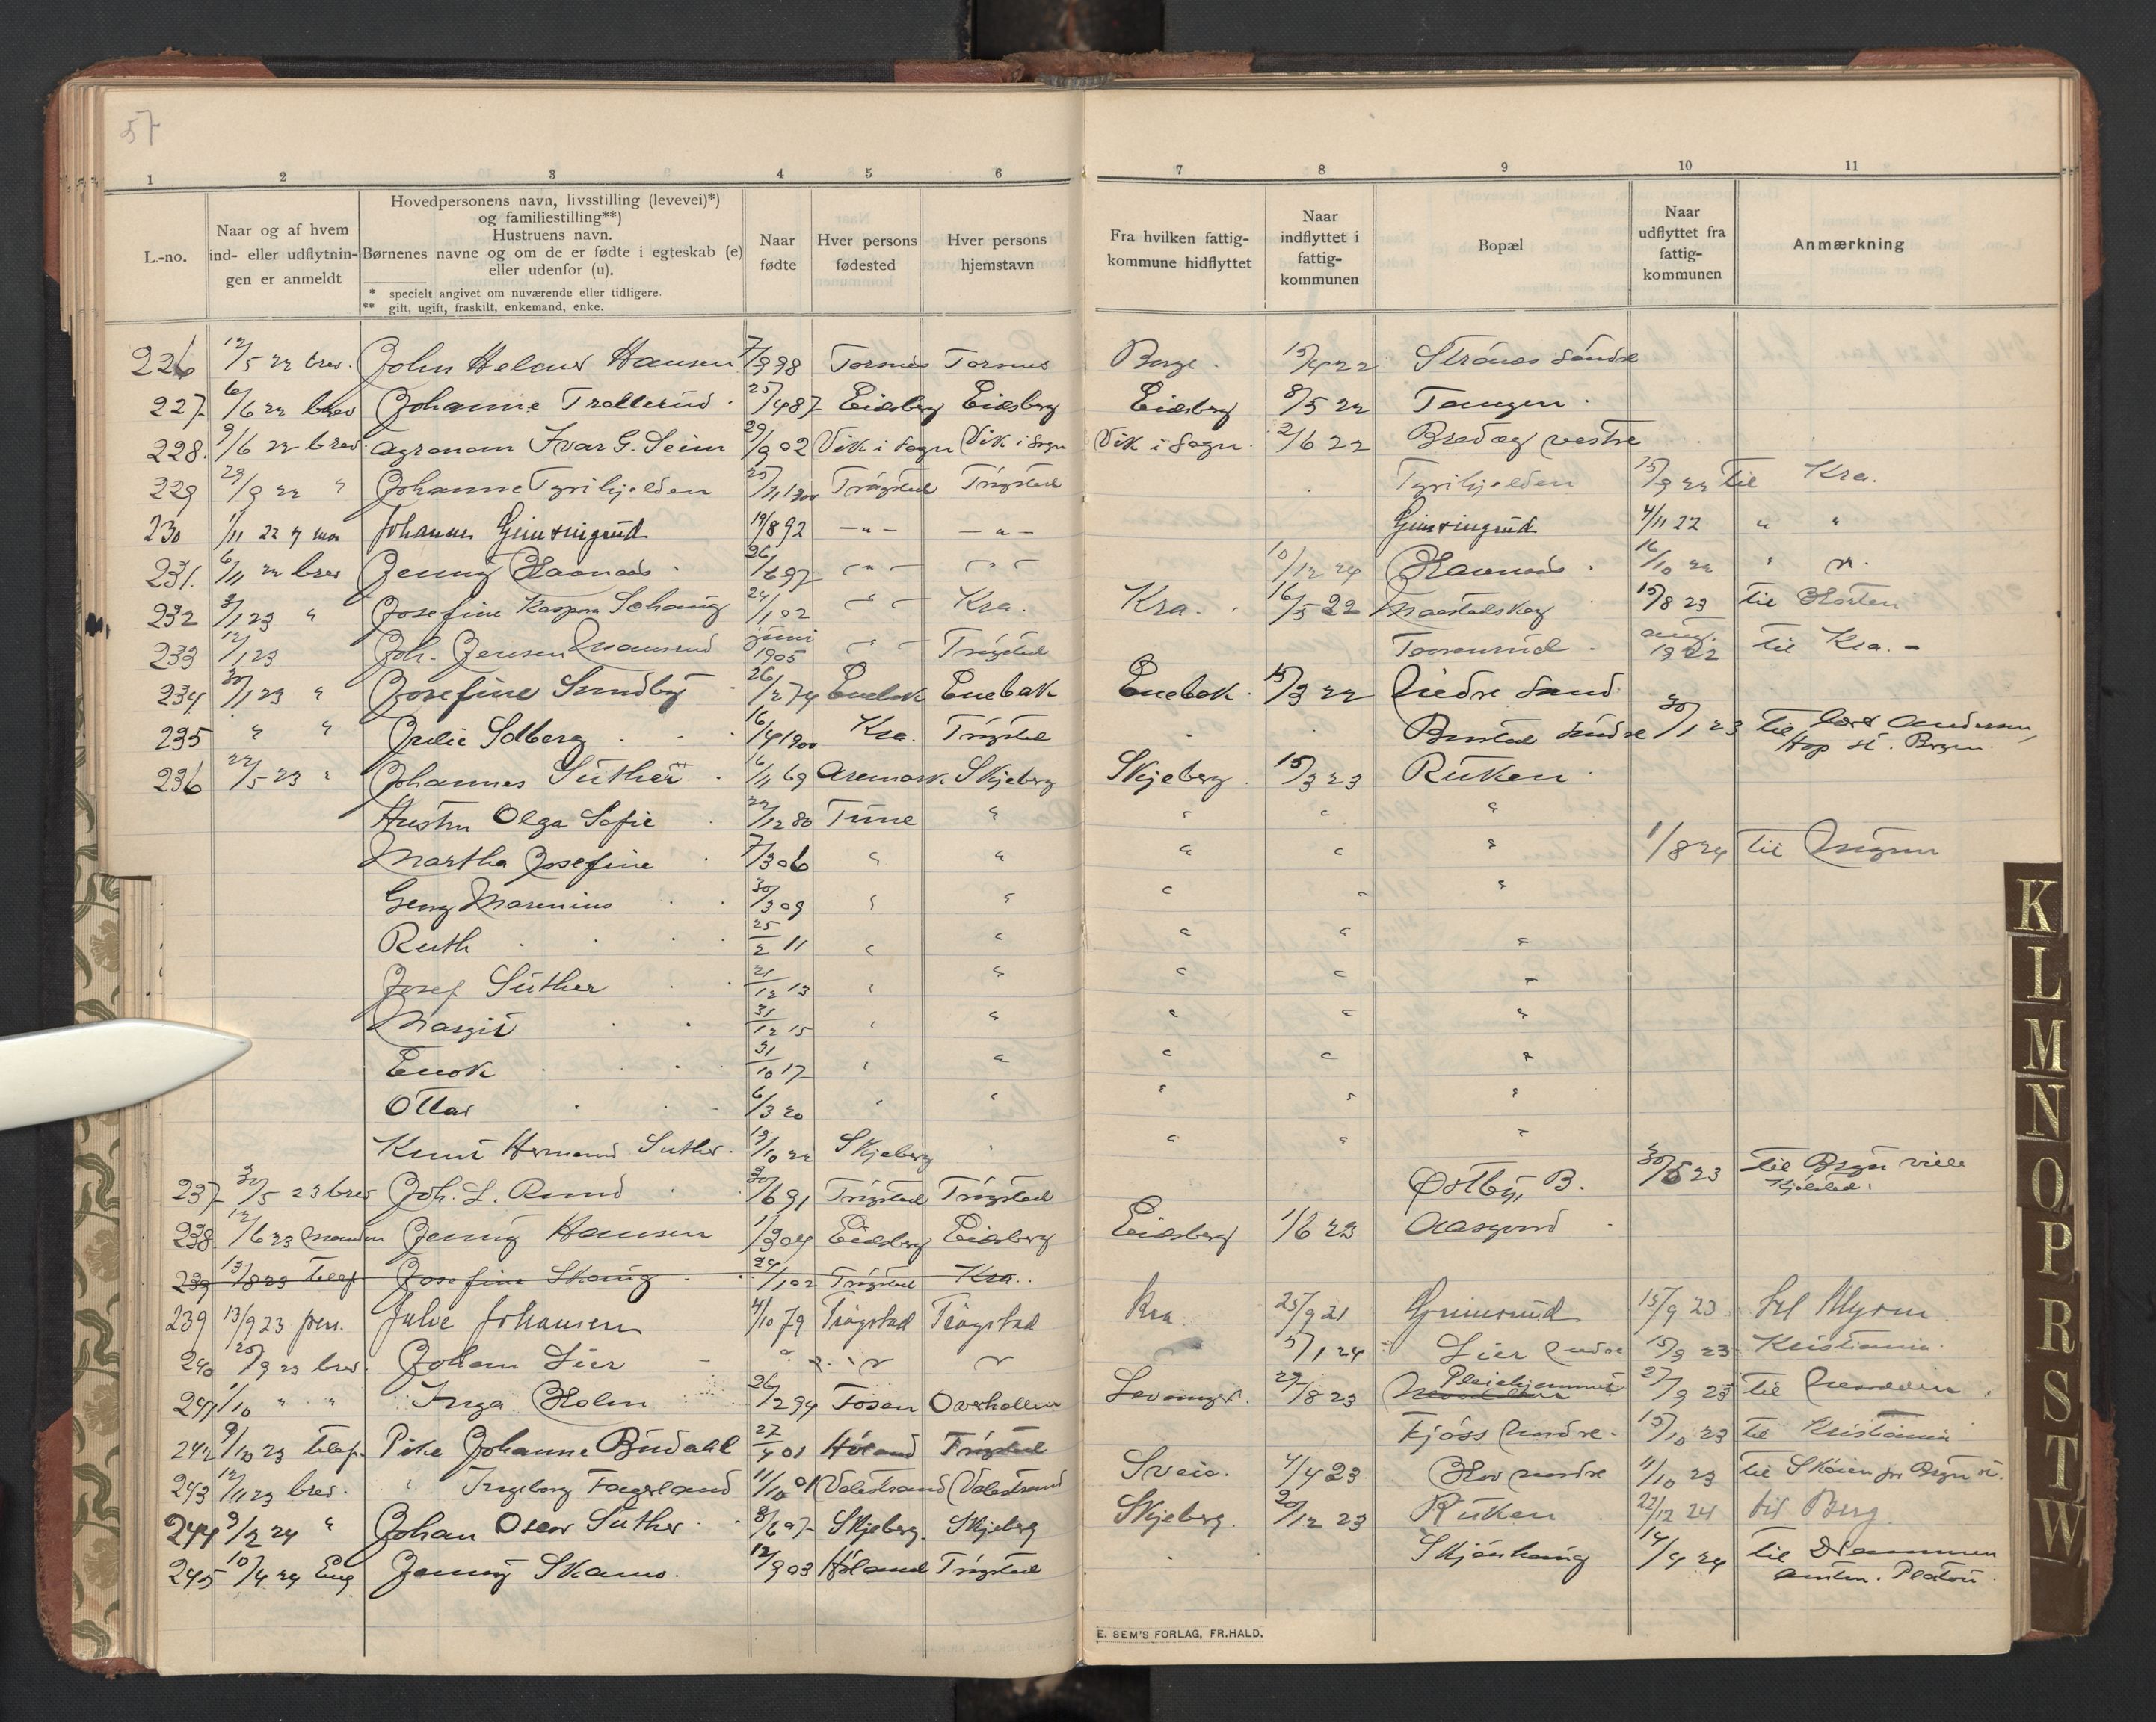 57
1 2 3 4 5 6 7 8 9 10 11
L.-no.
Naar og af hvem
ind- eller udflytnin-
gen er anmeldt
Hovedpersonens navn, livsstilling (levevei)*)
og familiestilling**)
Hustruens navn.
Børnenes navne og om de er fødte i egteskab (e)
eller udenfor (u).
* specielt angivet om nuværende eller tidligere.
** gift, ugift, fraskilt, enkemand, enke.
Naar
fødte
Hver persons
fødested
Hver persons
hjemstavn
Fra hvilken fattig-
kommune hidflyttet
Naar
indflyttet i
fattig-
kommunen
Bopæl
Naar
udflyttet fra
fattig-
kommunen
Anmærkning
226 12/5 22 brev. John Helmer Hansen 7/9 98 Torsnes Torsnes Borge. 15/4 22 Strønes søndre
227 6/6 22 brev Johanne Trollerud. 25/4 87 Eidsberg Eidsberg Eidsberg 8/5 22 Tangen.
228. 9/6 22 brev. agronom Ivar G. Seim 29/9 02 Vik i Sogn Vik i Sogn Vik i Sogn. 2/6 22 vestre
229 29/9 22 " Johanne Tyrihjelden 25/11 1900 Trøgstad Trøgstad Tyrihjelden 15/9 22 til Kra.
230 1/11 22 Johannes 19/8 92 — " — — " — 4/11 22 " "
231. 6/11 22 brev Jenny Havnaas. 26/6 97 — " — — " — 10/12 24 Havnaas. 16/10 22 " "
232 3/1 23 " Josefine Kaspara Schaug 24/1 02 — " — Kra. Kra. 16/5 22 15/8 23 til Horten
233 12/1 23 Joh. Jensen juni 1905 — " — Trøgstad aug. 1922 til Kra. -
234 30/1 23 " Josefine Sundby 26/2 74 Enebak Enebak Enebak. 15/3 22 Nedre Sand
235 " " Julie Solberg 16/4 1900 Kra. Trøgstad søndre 30/1 23 til Lars Andersen,
Hop st. Bryn.
236 22/5 23 " Johannes Suther 16/11 69 Aremark Skjeberg Skjeberg. 15/3 23 Ruken
Hustru Olga Sofie 22/12 80 Tune " " " "
Martha Josefine 7/3 06 " " " " " 1/8 24 til
Georg Marenius 30/3 09 " " " " "
Ruth 25/2 11 " " " " "
Josef Suther 21/12 13 " " " " "
Margit 31/12 15 " " " " "
Enok 31/10 17 " " " " "
Ottar 6/3 20 " " " " "
Knut Hermann Suther. 19/10 22 Skjeberg " " " "
237 30/5 23 brev Joh. L. Rund 30/6 91 Trøgstad Trøgstad Østby, B. 30/5 23 til Bryn
238. 12/6 23 Jenny Hansen 1/9 04 Eidsberg Eidsberg Eidsberg 1/6 23 Aasgaard
239 13/8 23 telef. Josefine Skaug 24/1 02 Trøgstad Kra.
239 13/9 23 pers. Julie Johansen 4/10 79 Trøgstad Trøgstad Kra. 25/9 21 Grimsrud 15/9 23 til Mysen
240 25/9 23 brev. Johan Lier " " " 5/1 24 Lier nedre 15/9 23 Kristiania.
241 1/10 " " Inga Holm 26/2 94 Fosen Overhallen Levanger. 29/8 23 Pleiehjemmet 27/9 23 til
242 9/10 23 telef. Pike Johanne Budahl 27/4 01 Høland Trøgstad Fjøss nordre. 15/10 23 til Kristiania
243 12/11 23 brev. " Ingeborg Fagerland 11/10 01 Valestrand Valestrand Sveio. 4/4 23 Hov nordre 11/10 23 til Skøien pr Bryn st.
244 9/2 24 " Johan Oscar Suther 8/6 07 Skjeberg. Skjeberg Skjeberg. 20/12 23 Ruken 22/12 24 til Berg.
245 10/4 24 Jenny Skams. 12/9 03 Høland Trøgstad Skjønhaug 14/4 24 til Drammen
E. SEM'S FORLAG, FR.HALD.
K
L
M
N
O
P
R
S
T
W